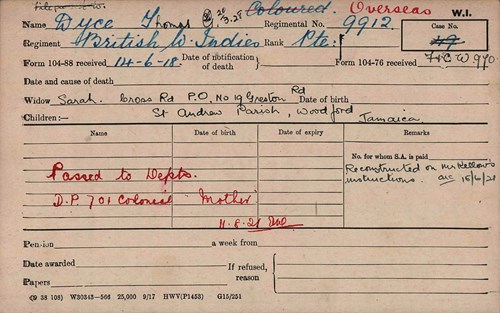 Coloured. Overseas W.I.
Name Dyce Thomas Regimental No. 9912 Case No.
Regiment British W. Indies Rank Pte.
Form 104-88 received 14-6-18. Date of notification of death Form 104-76 received
Date and cause of death
Widow Sarah. Cross Rd P.O. No 19 Greston Rd Date of birth
Children:— St Andrew Parish, Woodford Jamaica
Name Date of birth Date of expiry Remarks
No. for whom S.A. is paid
Passed to Depts. Reconstructed on Mr Kellow's
D.P. 701 Colonial Mother instructions.
11-8-21
Pension a week from
Date awarded If refused,
Papers reason
(9 38 108) W30343—566 25,000 9/17 HWV(P1453) G15/251